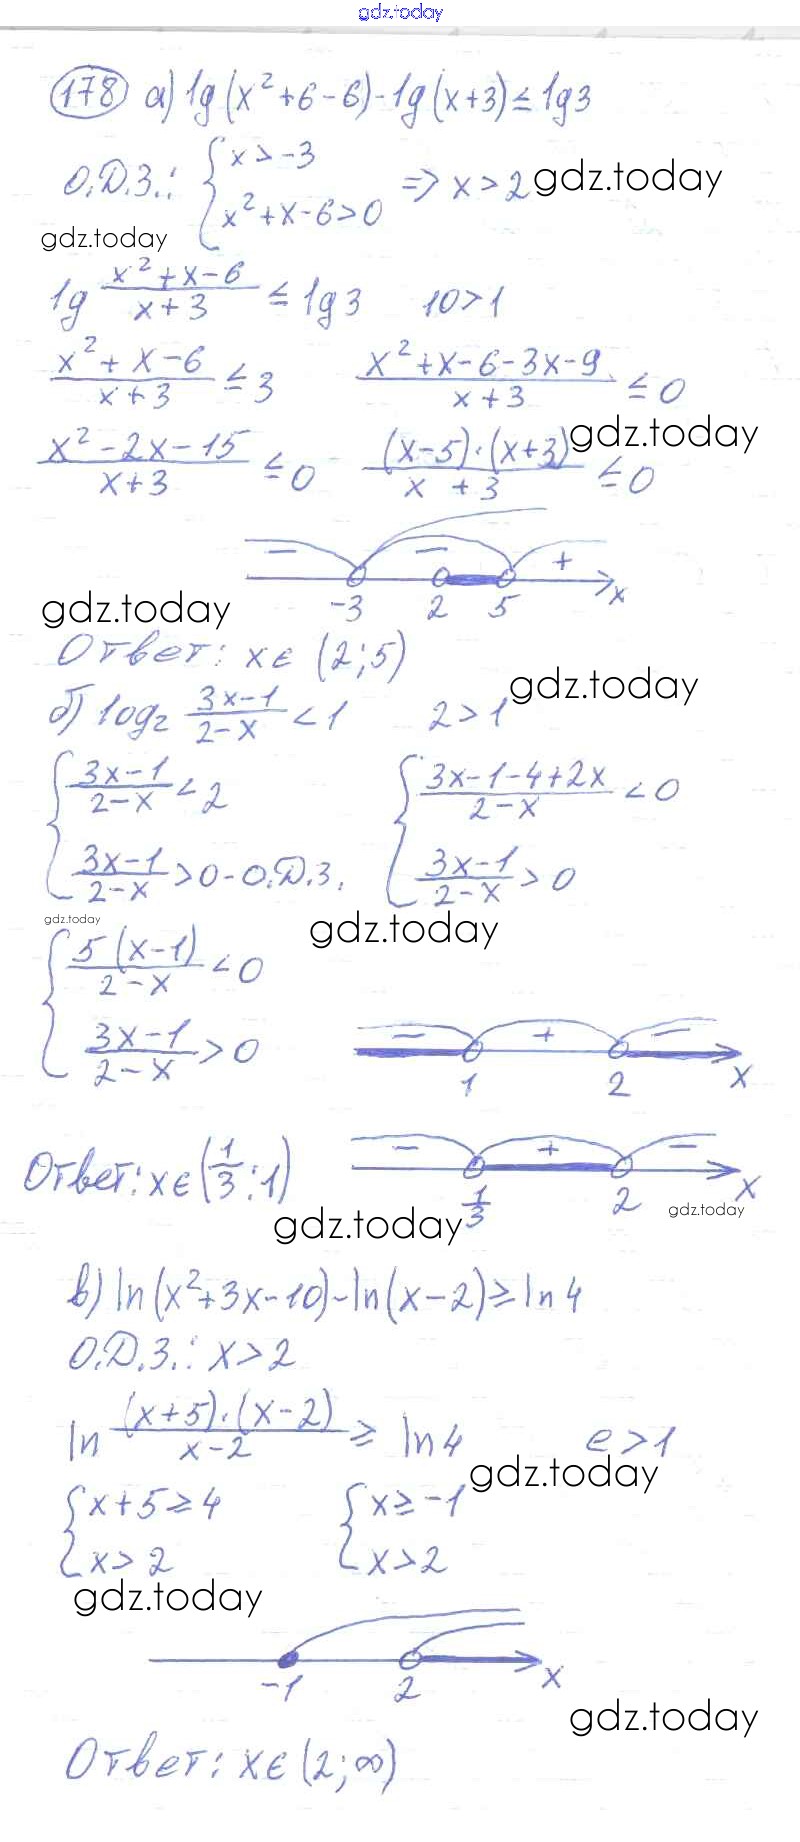 gdz.today
178 а) lg(x²+6-6)-lg(x+3)≤lg3
О.Д.З.: { x>-3
x²+x-6>0 ⇒ x>2 gdz.today
gdz.today
lg (x²+x-6)/(x+3) ≤ lg3 10>1
(x²+x-6)/(x+3) ≤ 3 (x²+x-6-3x-9)/(x+3) ≤ 0
gdz.today
(x²-2x-15)/(x+3) ≤ 0 ((x-5)·(x+3))/(x+3) ≤ 0
- - + x
-3 2 5
gdz.today
Ответ: x∈(2;5)
gdz.today
б) log₂ (3x-1)/(2-x) < 1 2>1
{ (3x-1)/(2-x) < 2 { (3x-1-4+2x)/(2-x) < 0
(3x-1)/(2-x) > 0 - О.Д.З. (3x-1)/(2-x) > 0
gdz.today gdz.today
{ 5(x-1)/(2-x) < 0
(3x-1)/(2-x) > 0
- + - x
1 2
Ответ: x∈(1/3;1)
- + - x
1/3 2
gdz.today gdz.today
в) ln(x²+3x-10)-ln(x-2)≥ln4
О.Д.З.: x>2
ln ((x+5)·(x-2))/(x-2) ≥ ln4 e>1
gdz.today
{ x+5≥4 { x≥-1
x>2 x>2
gdz.today
-1 2 x
gdz.today
Ответ: x∈(2;∞)